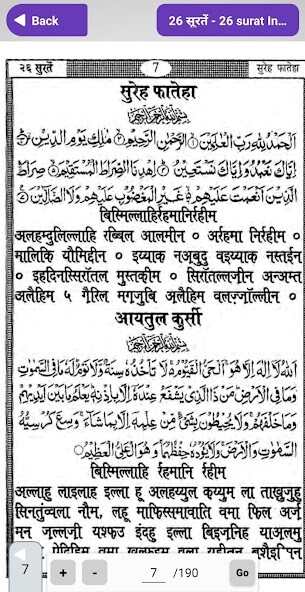 Back
26 सूरतें - 26 surat In...
२६ सुरतें
7
सुरेह फातेहा
सुरेह फातेहा
بِسْمِ اللّٰهِ الرَّحْمٰنِ الرَّحِيْمِ
اَلْحَمْدُ لِلّٰهِ رَبِّ الْعٰلَمِيْنَ الرَّحْمٰنِ الرَّحِيْمِ مٰلِكِ يَوْمِ الدِّيْنِ
اِيَّاكَ نَعْبُدُ وَاِيَّاكَ نَسْتَعِيْنُ اِهْدِنَا الصِّرَاطَ الْمُسْتَقِيْمَ صِرَاطَ
الَّذِيْنَ اَنْعَمْتَ عَلَيْهِمْ غَيْرِ الْمَغْضُوْبِ عَلَيْهِمْ وَلَا الضَّآلِّيْنَ
बिस्मिल्लाहिर्रहमानिर्रहीम
अलहम्दुलिल्लाहि रब्बिल आलमीन ० अर्रहमा निर्रहीम ०
मालिकि यौमिद्दीन ० इय्याक नअ्बुदु वइय्याक नस्तईन
० इहदिनस्सिरॉतल मुस्तक़ीम ० सिरॉतल्लज़ीन अन्अम्त
अलैहिम ५ गैरिल मगज़ुबि अलैहिम वलज़्ज़ॉल्लीन ०
आयतुल कुर्सी
بِسْمِ اللّٰهِ الرَّحْمٰنِ الرَّحِيْمِ
اَللّٰهُ لَآ اِلٰهَ اِلَّا هُوَ اَلْحَيُّ الْقَيُّوْمُ لَا تَاْخُذُهٗ سِنَةٌ وَّلَا نَوْمٌ لَهٗ مَا فِى السَّمٰوٰتِ
وَمَا فِى الْاَرْضِ مَنْ ذَا الَّذِيْ يَشْفَعُ عِنْدَهٗٓ اِلَّا بِاِذْنِهٖ يَعْلَمُ مَا بَيْنَ اَيْدِيْهِمْ
وَمَا خَلْفَهُمْ وَلَا يُحِيْطُوْنَ بِشَيْءٍ مِّنْ عِلْمِهٖٓ اِلَّا بِمَا شَآءَ وَسِعَ كُرْسِيُّهُ
السَّمٰوٰتِ وَالْاَرْضَ وَلَا يَـُٔوْدُهٗ حِفْظُهُمَا وَهُوَ الْعَلِيُّ الْعَظِيْمُ
बिस्मिल्लाहि र्रहमानि र्रहीम
अल्लाहु लाइलाह इल्ला हू अलहय्युल क़य्युम ला ताख़ुज़ुहू
सिनतुंव्वला नौम, लहू माफिस्समावाति वमा फिल अर्ज़
मन ज़ल्लज़ी यश्फउ इंदहू इल्ला बिइज़निह याअ़लमु
7
+
-
7 /190
Go